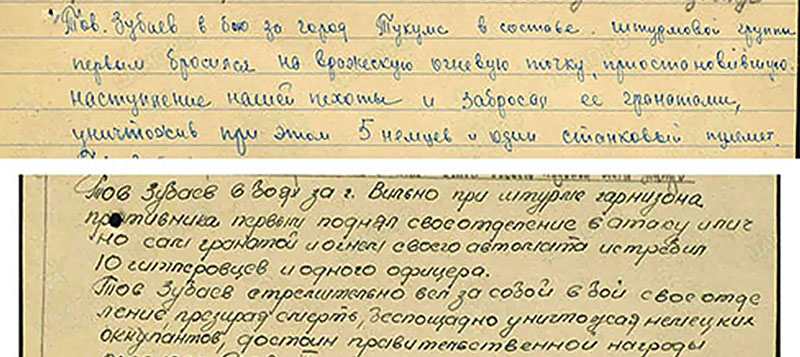 Тов. Зубаев в бою за город Тукумс в составе штурмовой группы
первым бросился на вражескую огневую точку, приостановившую
наступление нашей пехоты и забросал ее гранатами,
уничтожив при этом 5 немцев и один станковый пулемет.
Тов Зубаев в боях за г. Вильно при штурме гарнизона
противника первым поднял свое отделение в атаку и лич
но сам гранатой и огнем своего автомата истребил
10 гитлеровцев и одного офицера.
Тов Зубаев стремительно вел за собой в бой свое отде
ление презирая смерть, беспощадно уничтожая немецких
оккупантов, достоин правительственной награды